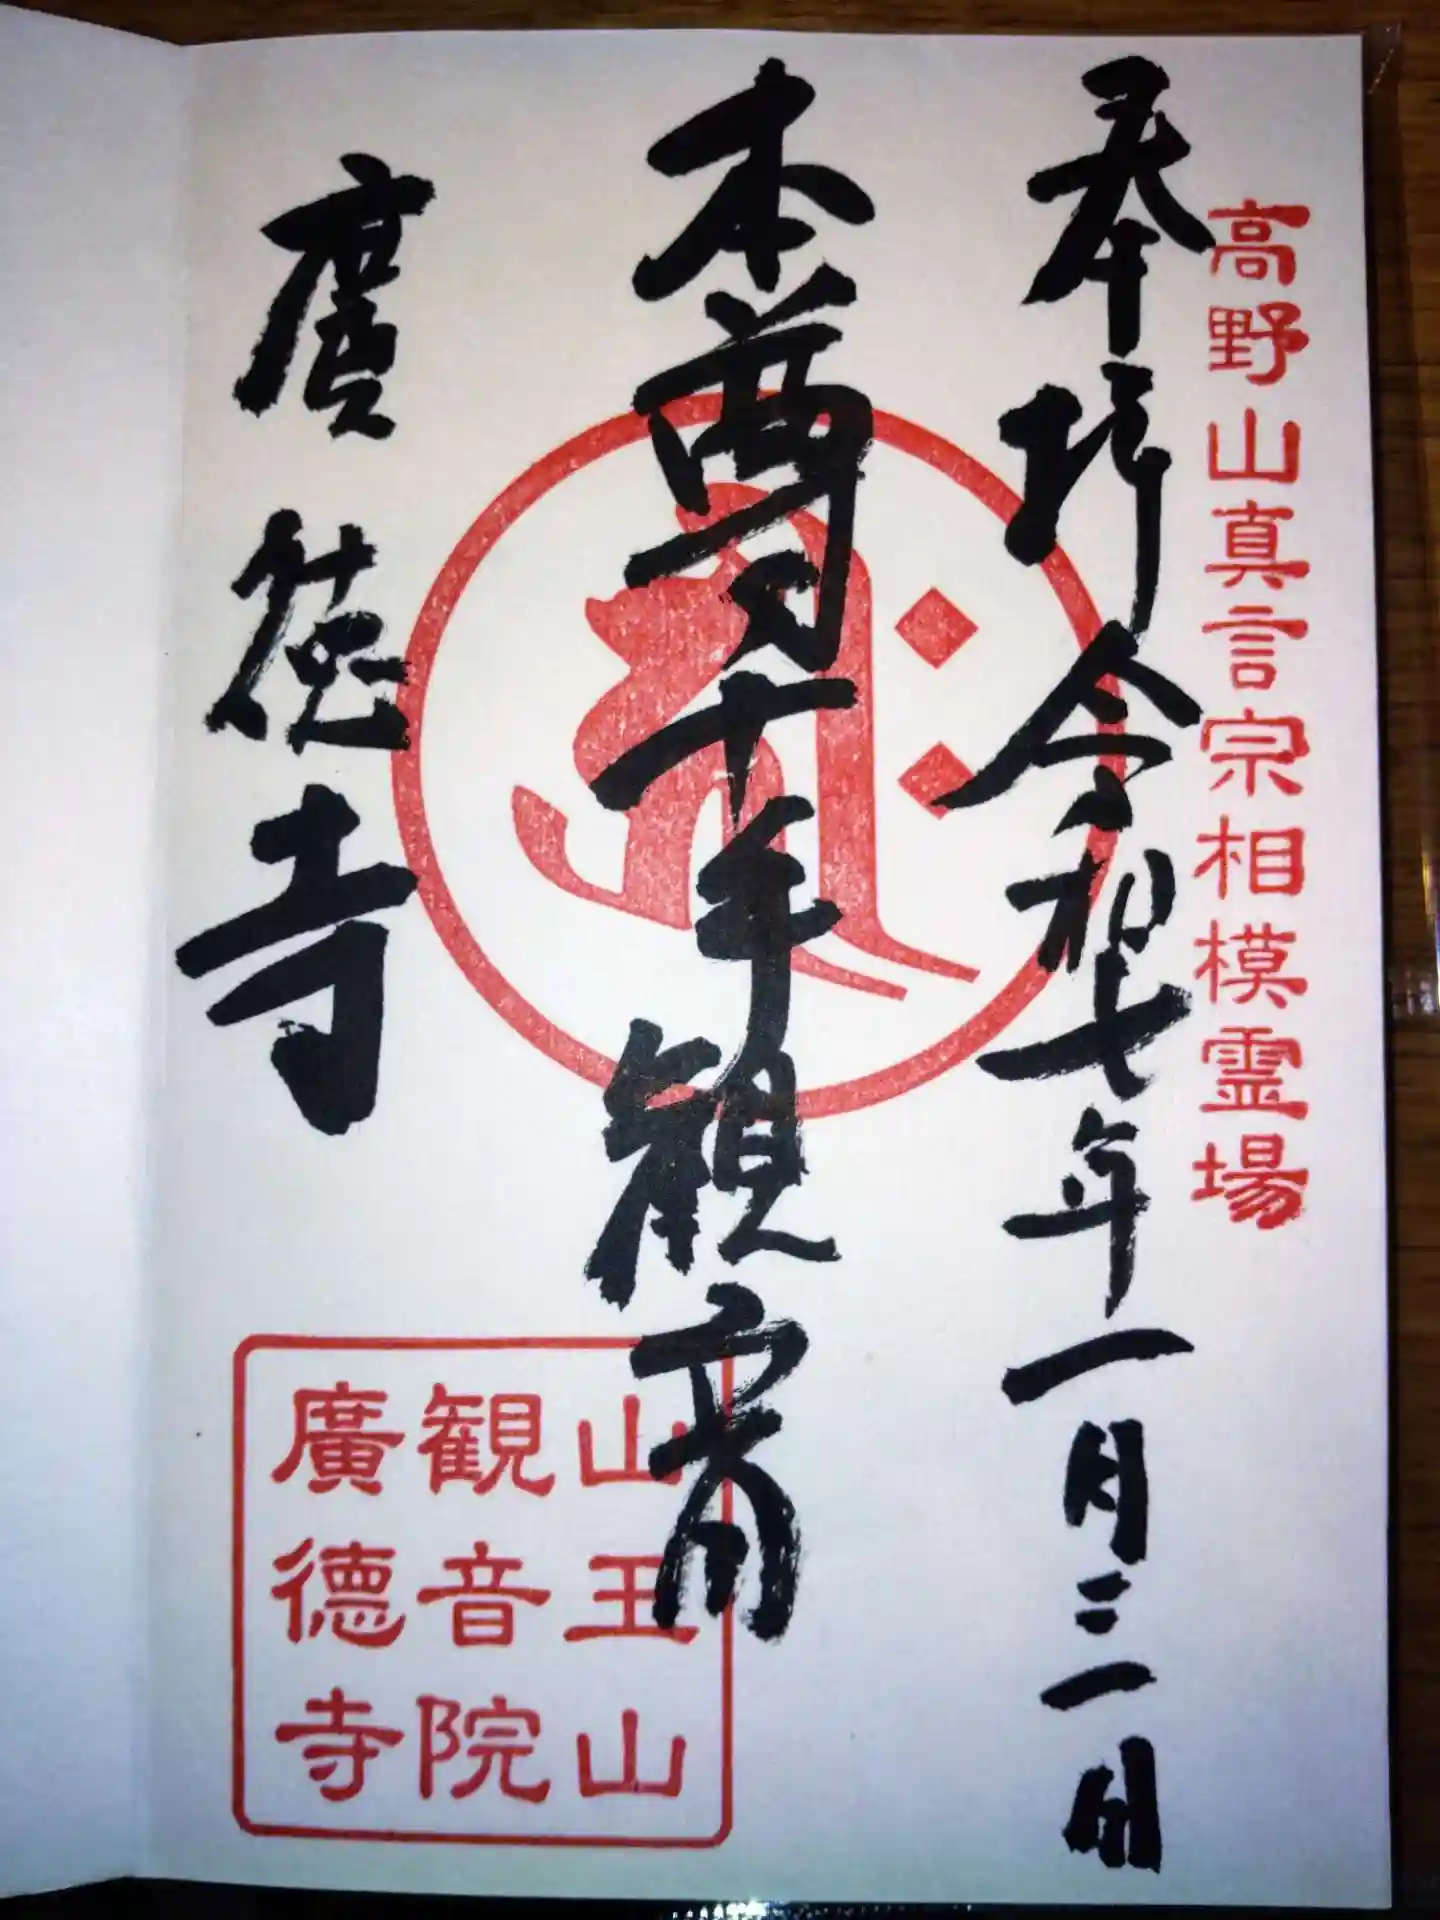 高野山真言宗相模霊場
奉拝令和七年一月二一日
本尊千手観音
廣徳寺
山王山
観音院
廣徳寺